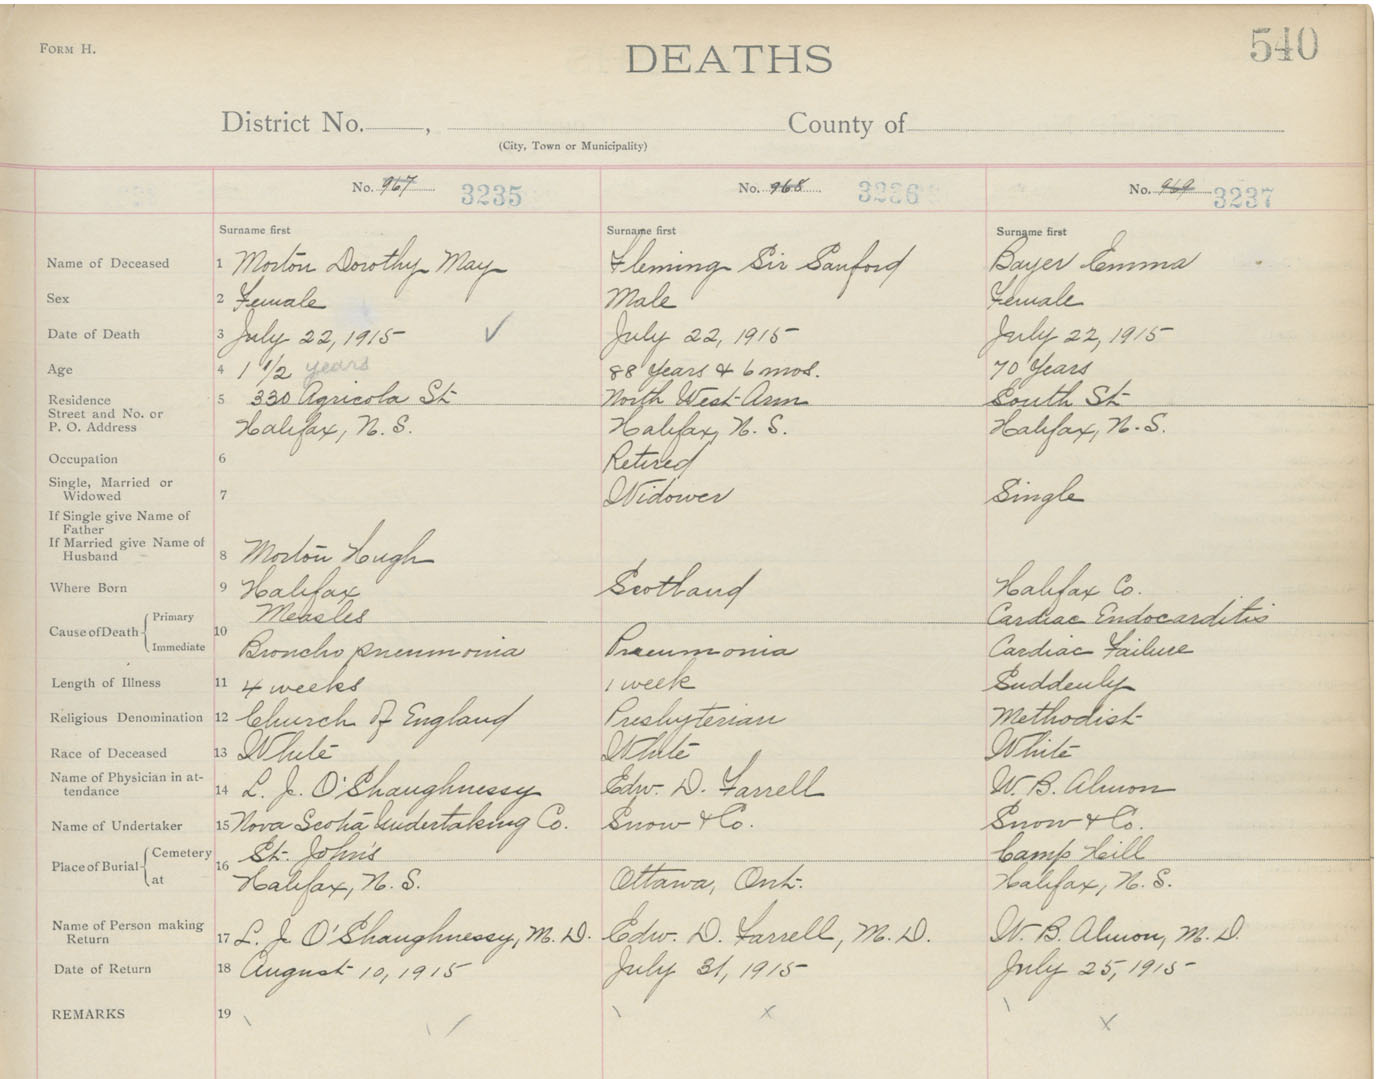 FORM H.
DEATHS
540
District No. , County of
(City, Town or Municipality)
No. 967 3235 No. 968 3236 No. 969 3237
Surname first Surname first Surname first
Name of Deceased 1 Morton Dorothy May Fleming Sir Sanford Bayer Emma
Sex 2 Female Male Female
Date of Death 3 July 22, 1915 ✓ July 22, 1915 July 22, 1915
Age 4 1 1/2 years 88 Years & 6 mos. 70 Years
Residence 5 330 Agricola St North West Arm South St
Street and No. or
P. O. Address Halifax, N. S. Halifax, N. S. Halifax, N. S.
Occupation 6 Retired
Single, Married or
Widowed 7 Widower Single
If Single give Name of
Father
If Married give Name of
Husband 8 Morton Hugh
Where Born 9 Halifax Scotland Halifax Co.
Cause of Death Primary 10 Measles Cardiac Endocarditis
Immediate Broncho pneumonia Pneumonia Cardiac Failure
Length of Illness 11 4 weeks 1 week Suddenly
Religious Denomination 12 Church of England Presbyterian Methodist
Race of Deceased 13 White White White
Name of Physician in at-
tendance 14 L. J. O'Shaughnessy Edw. D. Farrell W. B. Almon
Name of Undertaker 15 Nova Scotia Undertaking Co. Snow & Co. Snow & Co.
Place of Burial Cemetery 16 St. John's Camp Hill
at Halifax, N. S. Ottawa, Ont. Halifax, N. S.
Name of Person making
Return 17 L. J. O'Shaughnessy, M. D. Edw. D. Farrell, M. D. W. B. Almon, M. D.
Date of Return 18 August 10, 1915 July 31, 1915 July 25, 1915
REMARKS 19